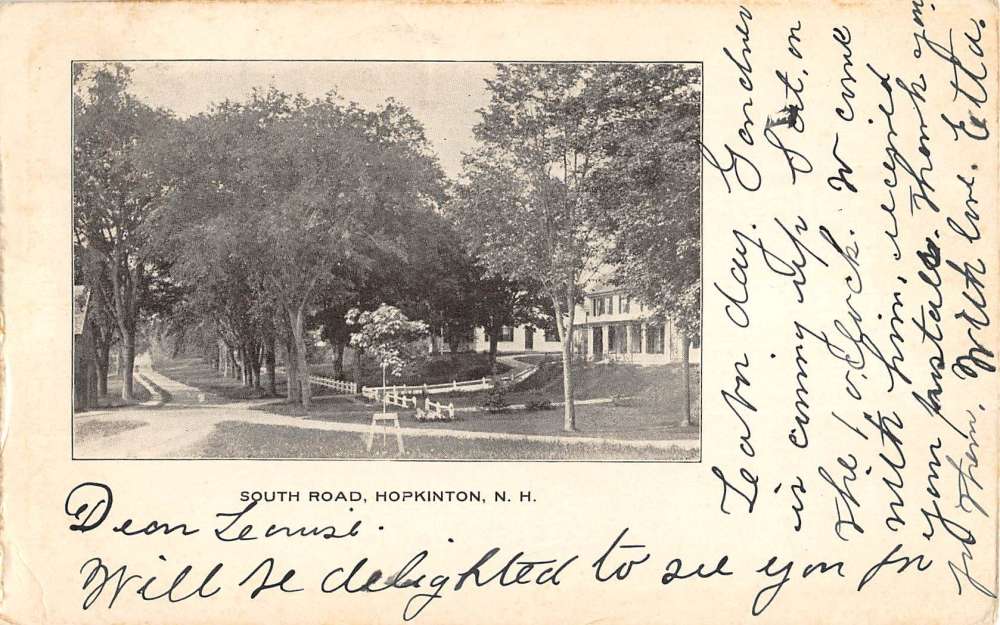 SOUTH ROAD, HOPKINTON, N. H.
Dear Louise.
Will be delighted to see you for
Labor day. Gardner
is coming up Sat. on
the 1 o,clock. come
with him, received
your postals. Thank you
for them. With love. Etta.